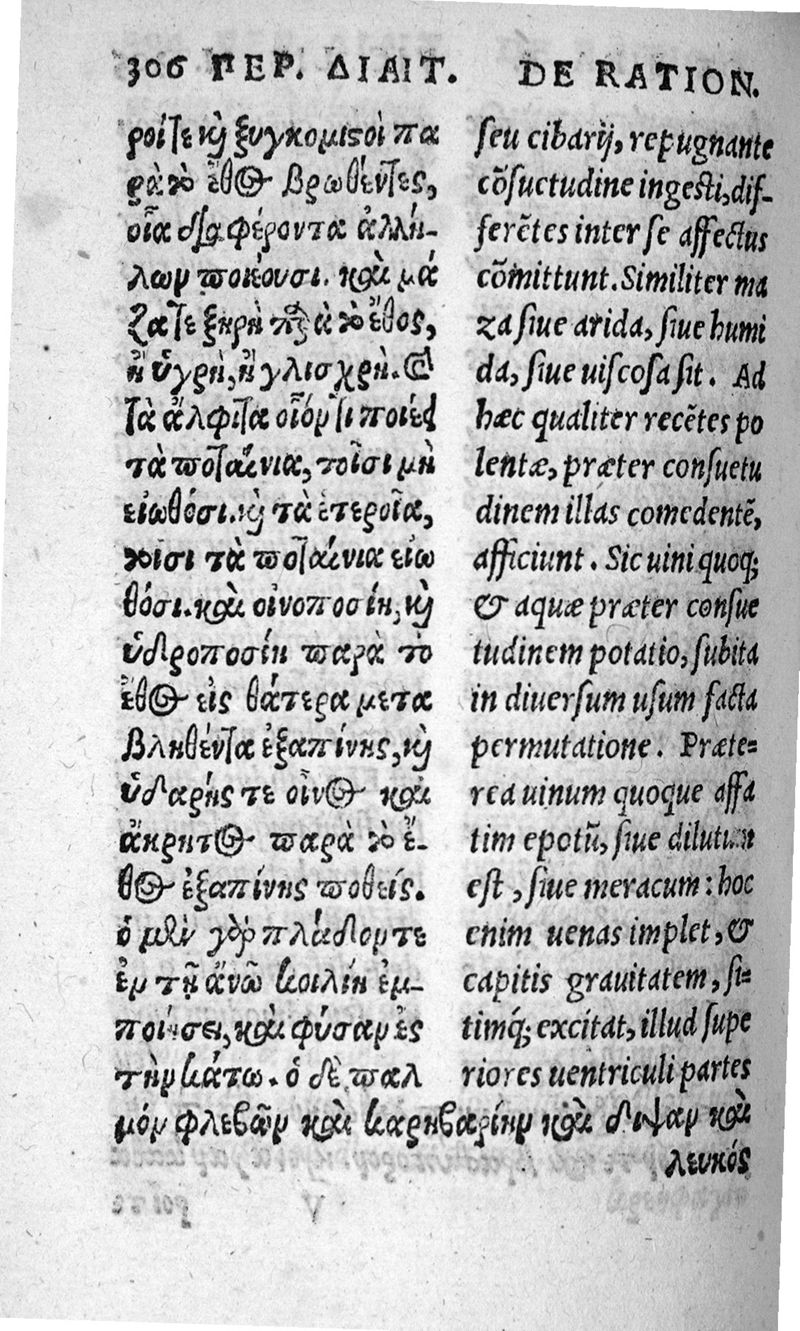 306 ΠΕΡ. ΔΙΑΙΤ. DE RATION.
ροί τε καὶ ξυγκομιστοὶ πα
ρὰ τὸ ἔθος βρωθέντες,
οἷα διαφέροντα ἀλλή-
λων ποιέουσι. καὶ μά
ζα τε ξηρὴ παρὰ τὸ ἔθος,
ἢ ὑγρὴ, ἢ γλισχρὴ. καὶ
τὰ ἄλφιτα οἷόν τι ποιέει
τὰ ποταίνια, τοῖσι μὴ
εἰωθόσι. καὶ τὰ ἑτεροῖα,
τοῖσι τὰ ποταίνια εἰω
θόσι. καὶ οἰνοποσίη, καὶ
ὑδροποσίη παρὰ τὸ
ἔθος εἰς θάτερα μετα
βληθέντα ἐξαπίνης, καὶ
ὑδαρής τε οἶνος καὶ
ἄκρητος παρὰ τὸ ἔ-
θος ἐξαπίνης ποθείς.
ὁ μὲν γὰρ πλάδον τε
ἐν τῇ ἄνω κοιλίῃ ἐμ-
ποιήσει, καὶ φύσαν ἐς
τὴν κάτω. ὁ δὲ παλ
μὸν φλεβῶν καὶ καρηβαρίην καὶ δίψαν καὶ
λευκός
seu cibarij, repugnante
cõsuetudine ingesti, dif-
ferẽtes inter se affectus
cõmittunt. Similiter ma
za siue arida, siue humi
da, siue uiscosa sit. Ad
hæc qualiter recẽtes po
lentæ, præter consuetu
dinem illas comedentẽ,
afficiunt. Sic uini quoq;
& aquæ præter consue
tudinem potatio, subita
in diuersum usum facta
permutatione. Præte-
rea uinum quoque affa
tim epotũ, siue dilutum
est, siue meracum: hoc
enim uenas implet, &
capitis grauitatem, si-
timq́; excitat, illud supe
riores uentriculi partes